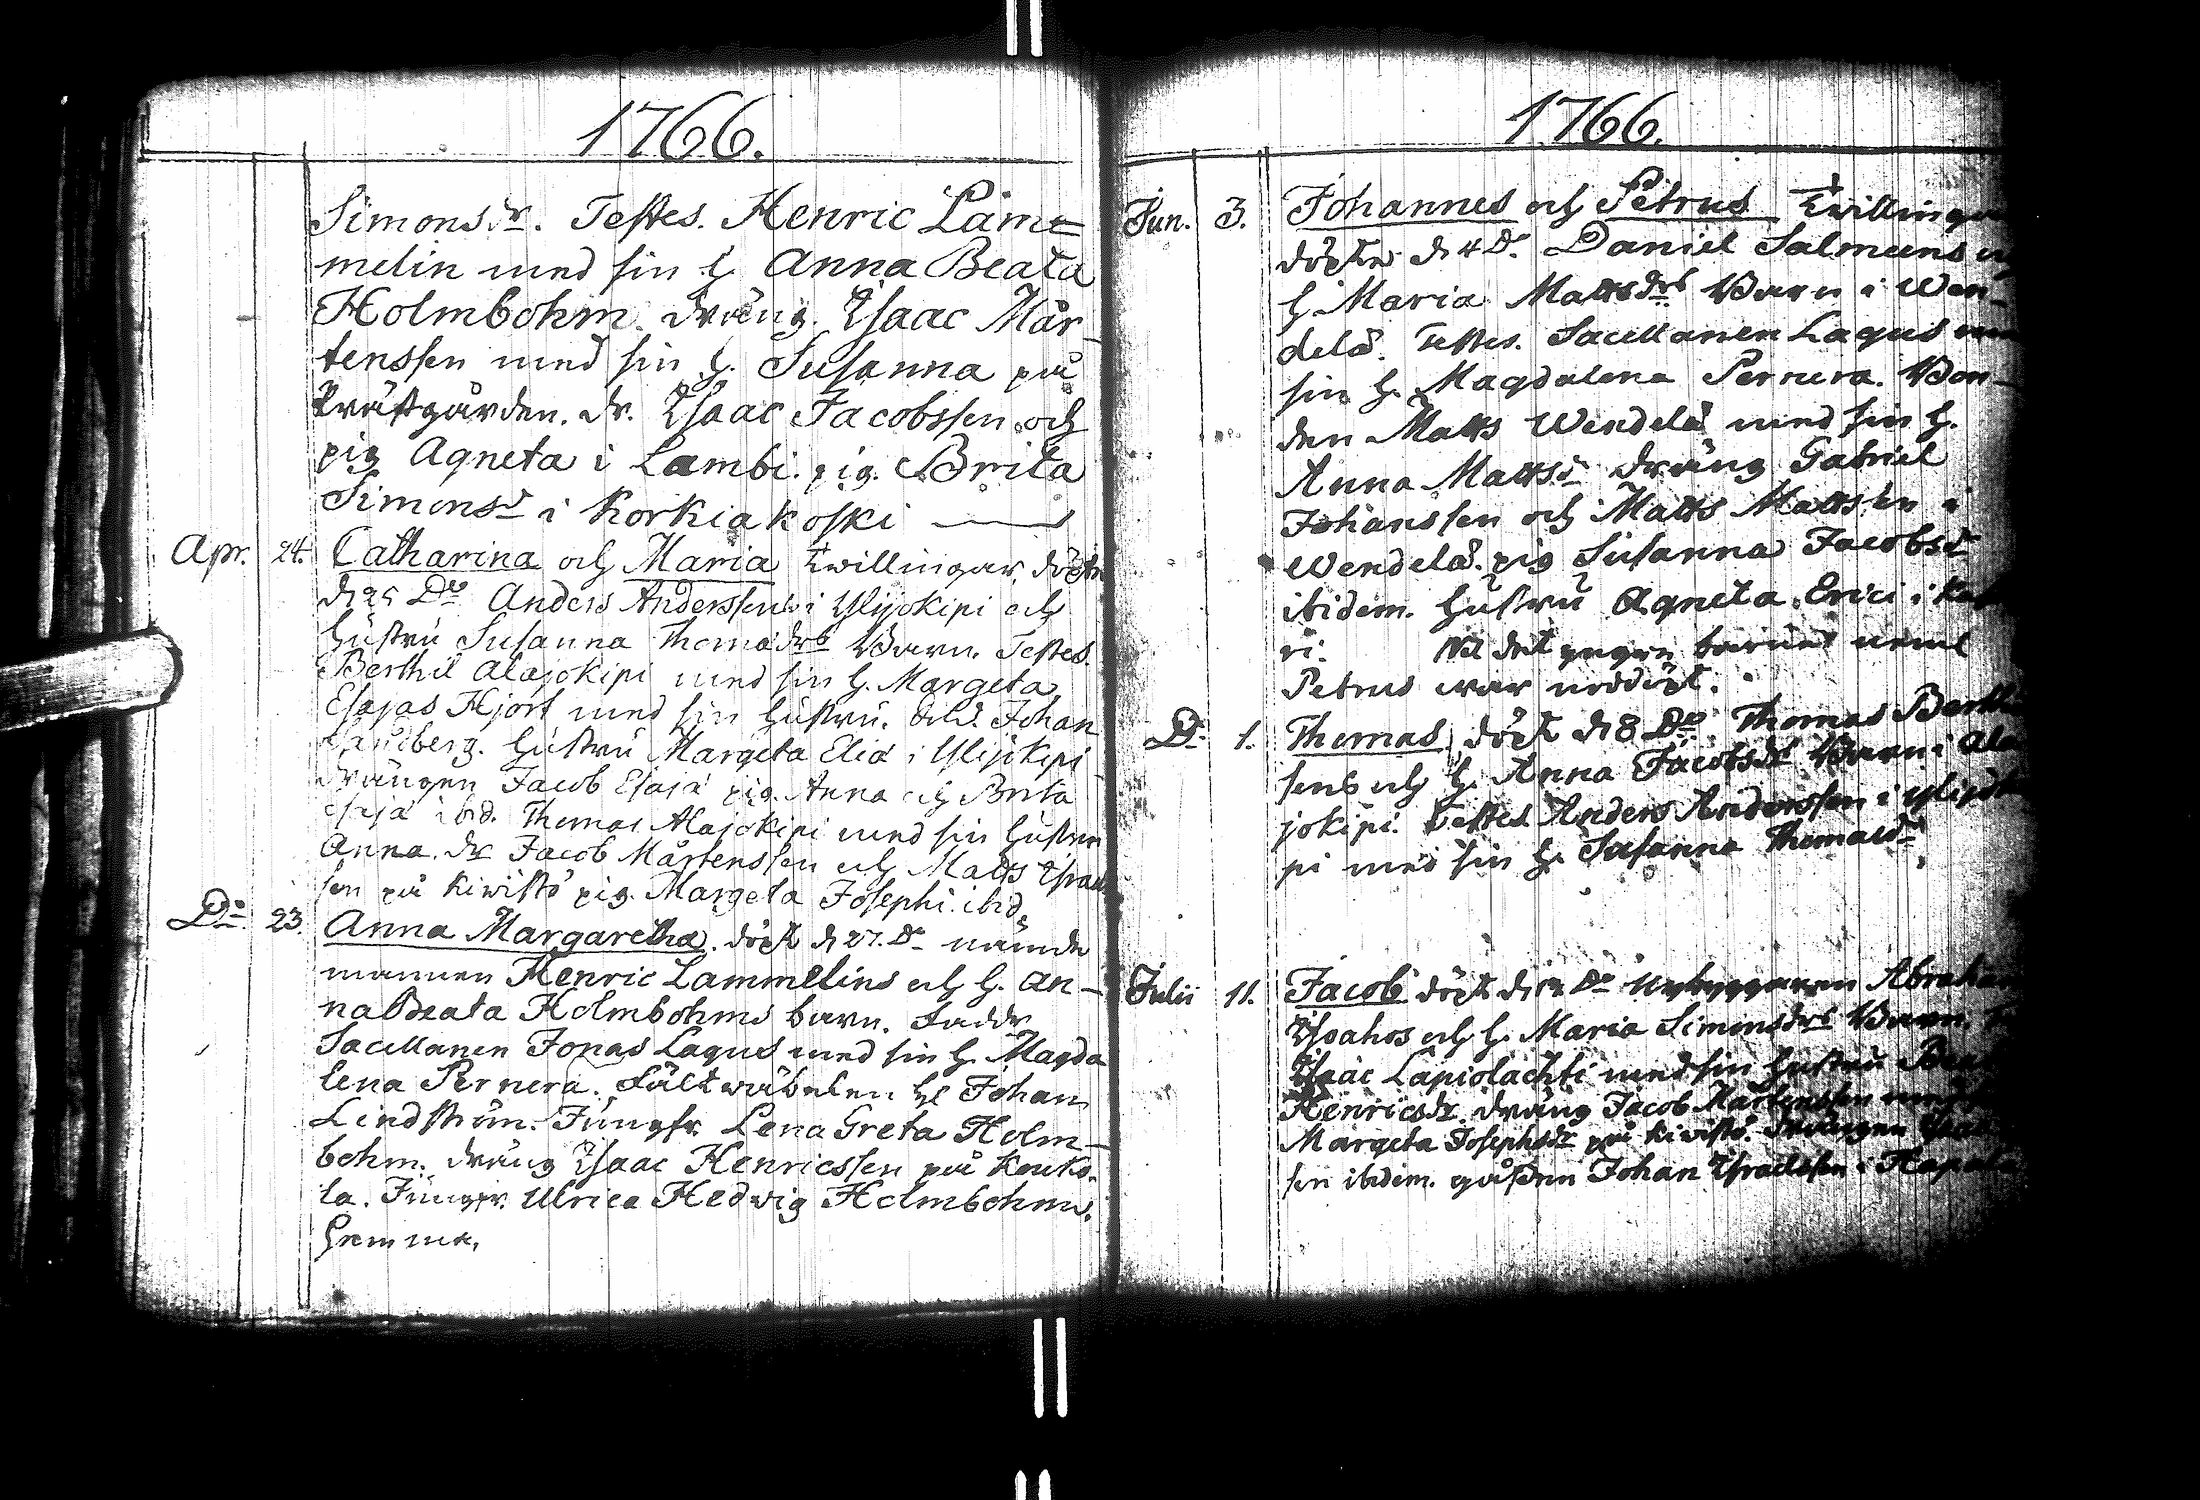 1766.
Simonsdr. Testes. Henric Läm=
melin med sin h. Anna Beata
Holmbohm. dräng. Isaac Mår-
tenssen med sin h. Susanna på
Prästgården. dr. Isaac Jacobssen och
pig Agneta i Lambi. pig. Brita
Simonsd i Korkiakoski
Apr. 24. Catharina och Maria Twillingar, döpte
d 25 Do Anders Anderssens i Ylijokipi och
hustru Susanna Thomædrs Barn. Testes
Berthil Alajokipi med sin h. Margeta,
Esajas Hjort med sin hustru. Johan
Sandberg. hustru Margeta Eliæ i Ylijokipi
drängen Jacob Esajæ pig. Anna och Brita
Esajæ ibid. Thomas Alajokipi med sin hustru
Anna. dr Jacob Mårtenssen och Matts Israel
sen på Kiwistö pig. Margeta Josephi ibid.
Do. 23. Anna Margaretha. döpt d 27. Do nämde
mannen Henric Lammelins och h. An-
na Beata Holmbohms barn. Faddr
Sacellanen Jonas Lagus med sin h. Magda
lena Pernera. Fältwäbelen Johan
Lindström. Jungfr. Lena Greta Holm-
bohm. dräng Isaac Henricssen på Kouko-
la. Jungfr. Ulrica Hedwig Holmbohm.
Hemma.
1766.
Jun. 3. Johannes och Petrus Twillingar
döpte d 4 Do. Daniel Salmeens
h. Maria Mattsdrs Barn i Wen-
delä. Testes. Sacellanen Lagus
sin h. Magdalena Pernera. Bon-
den Matts Wendelä med sin h.
Anna Mattsd dräng Gabriel
Johanssen och Matts Mattssen i
Wendelä. pig Susanna Jacobsd
ibidem. hustru Agneta Erici i
ri. NB det yngre barnet neml
Petrus war nöddöpt.
Do 1. Thomas döpt d 8 Do. Thomas Berthil
sens och h. Anna Jacobsdr Barn i Ala
jokipi. Testes Anders Anderssen i Ylijoki
pi med sin h. Susanna Thomæd
Julii 11. Jacob döpt d 12 Do Nybyggaren Abraham
Isoahos och h. Maria Simonsdrs Barn.
Isaac Lapiolachti med sin hustru
Henricsdr. dräng Jacob Mårtenssen
Margeta Josephsdr på Kiwistö. drängen
sen ibidem. gåssen Johan Israelssen i